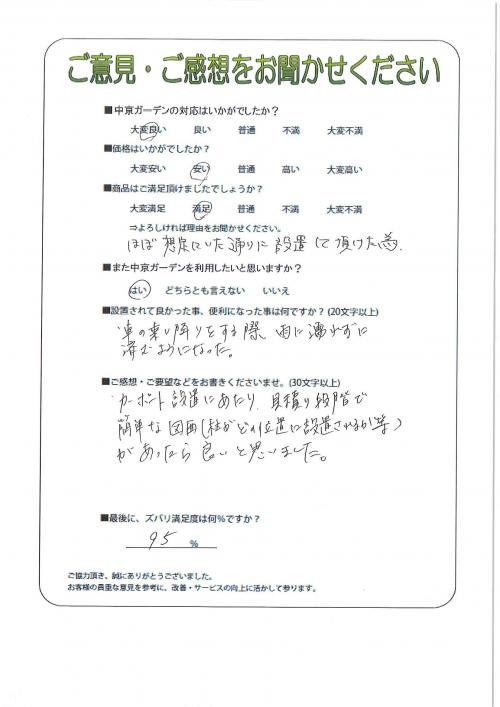 ご意見・ご感想をお聞かせください
■中京ガーデンの対応はいかがでしたか？
大変良い 良い 普通 不満 大変不満
■価格はいかがでしたか？
大変安い 安い 普通 高い 大変高い
■商品はご満足頂けましたでしょうか？
大変満足 満足 普通 不満 大変不満
⇒よろしければ理由をお聞かせください。
ほぼ想定していた通りに設置して頂けた為.
■また中京ガーデンを利用したいと思いますか？
はい どちらとも言えない いいえ
■設置されて良かった事、便利になった事は何ですか？(20文字以上)
・車の乗り降りをする際 雨に濡れずに
済むようになった。
■ご感想・ご要望などをお書きくださいませ。(30文字以上)
・カーポート設置にあたり、見積り段階で
簡単な図面(柱がどの位置に設置されるか等)
があったら良いと思いました。
■最後に、ズバリ満足度は何％ですか？
95 %
ご協力頂き、誠にありがとうございました。
お客様の貴重な意見を参考に、改善・サービスの向上に活かして参ります。